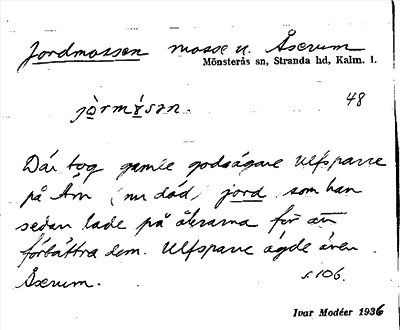 Jordmossen mosse n. Åserum
Mönsterås sn, Stranda hd, Kalm. l.
48
Där tog gamle godsägare Ulfsparre
på Em (nu död) jord, som han
sedan lade på åkrarna för att
förbättra dem. Ulfsparre ägde även
Åserum.
s. 106.
Ivar Modéer 1936